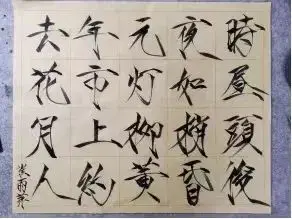 去年元夜時
花市灯如昼
月上柳梢頭
人約黄昏後